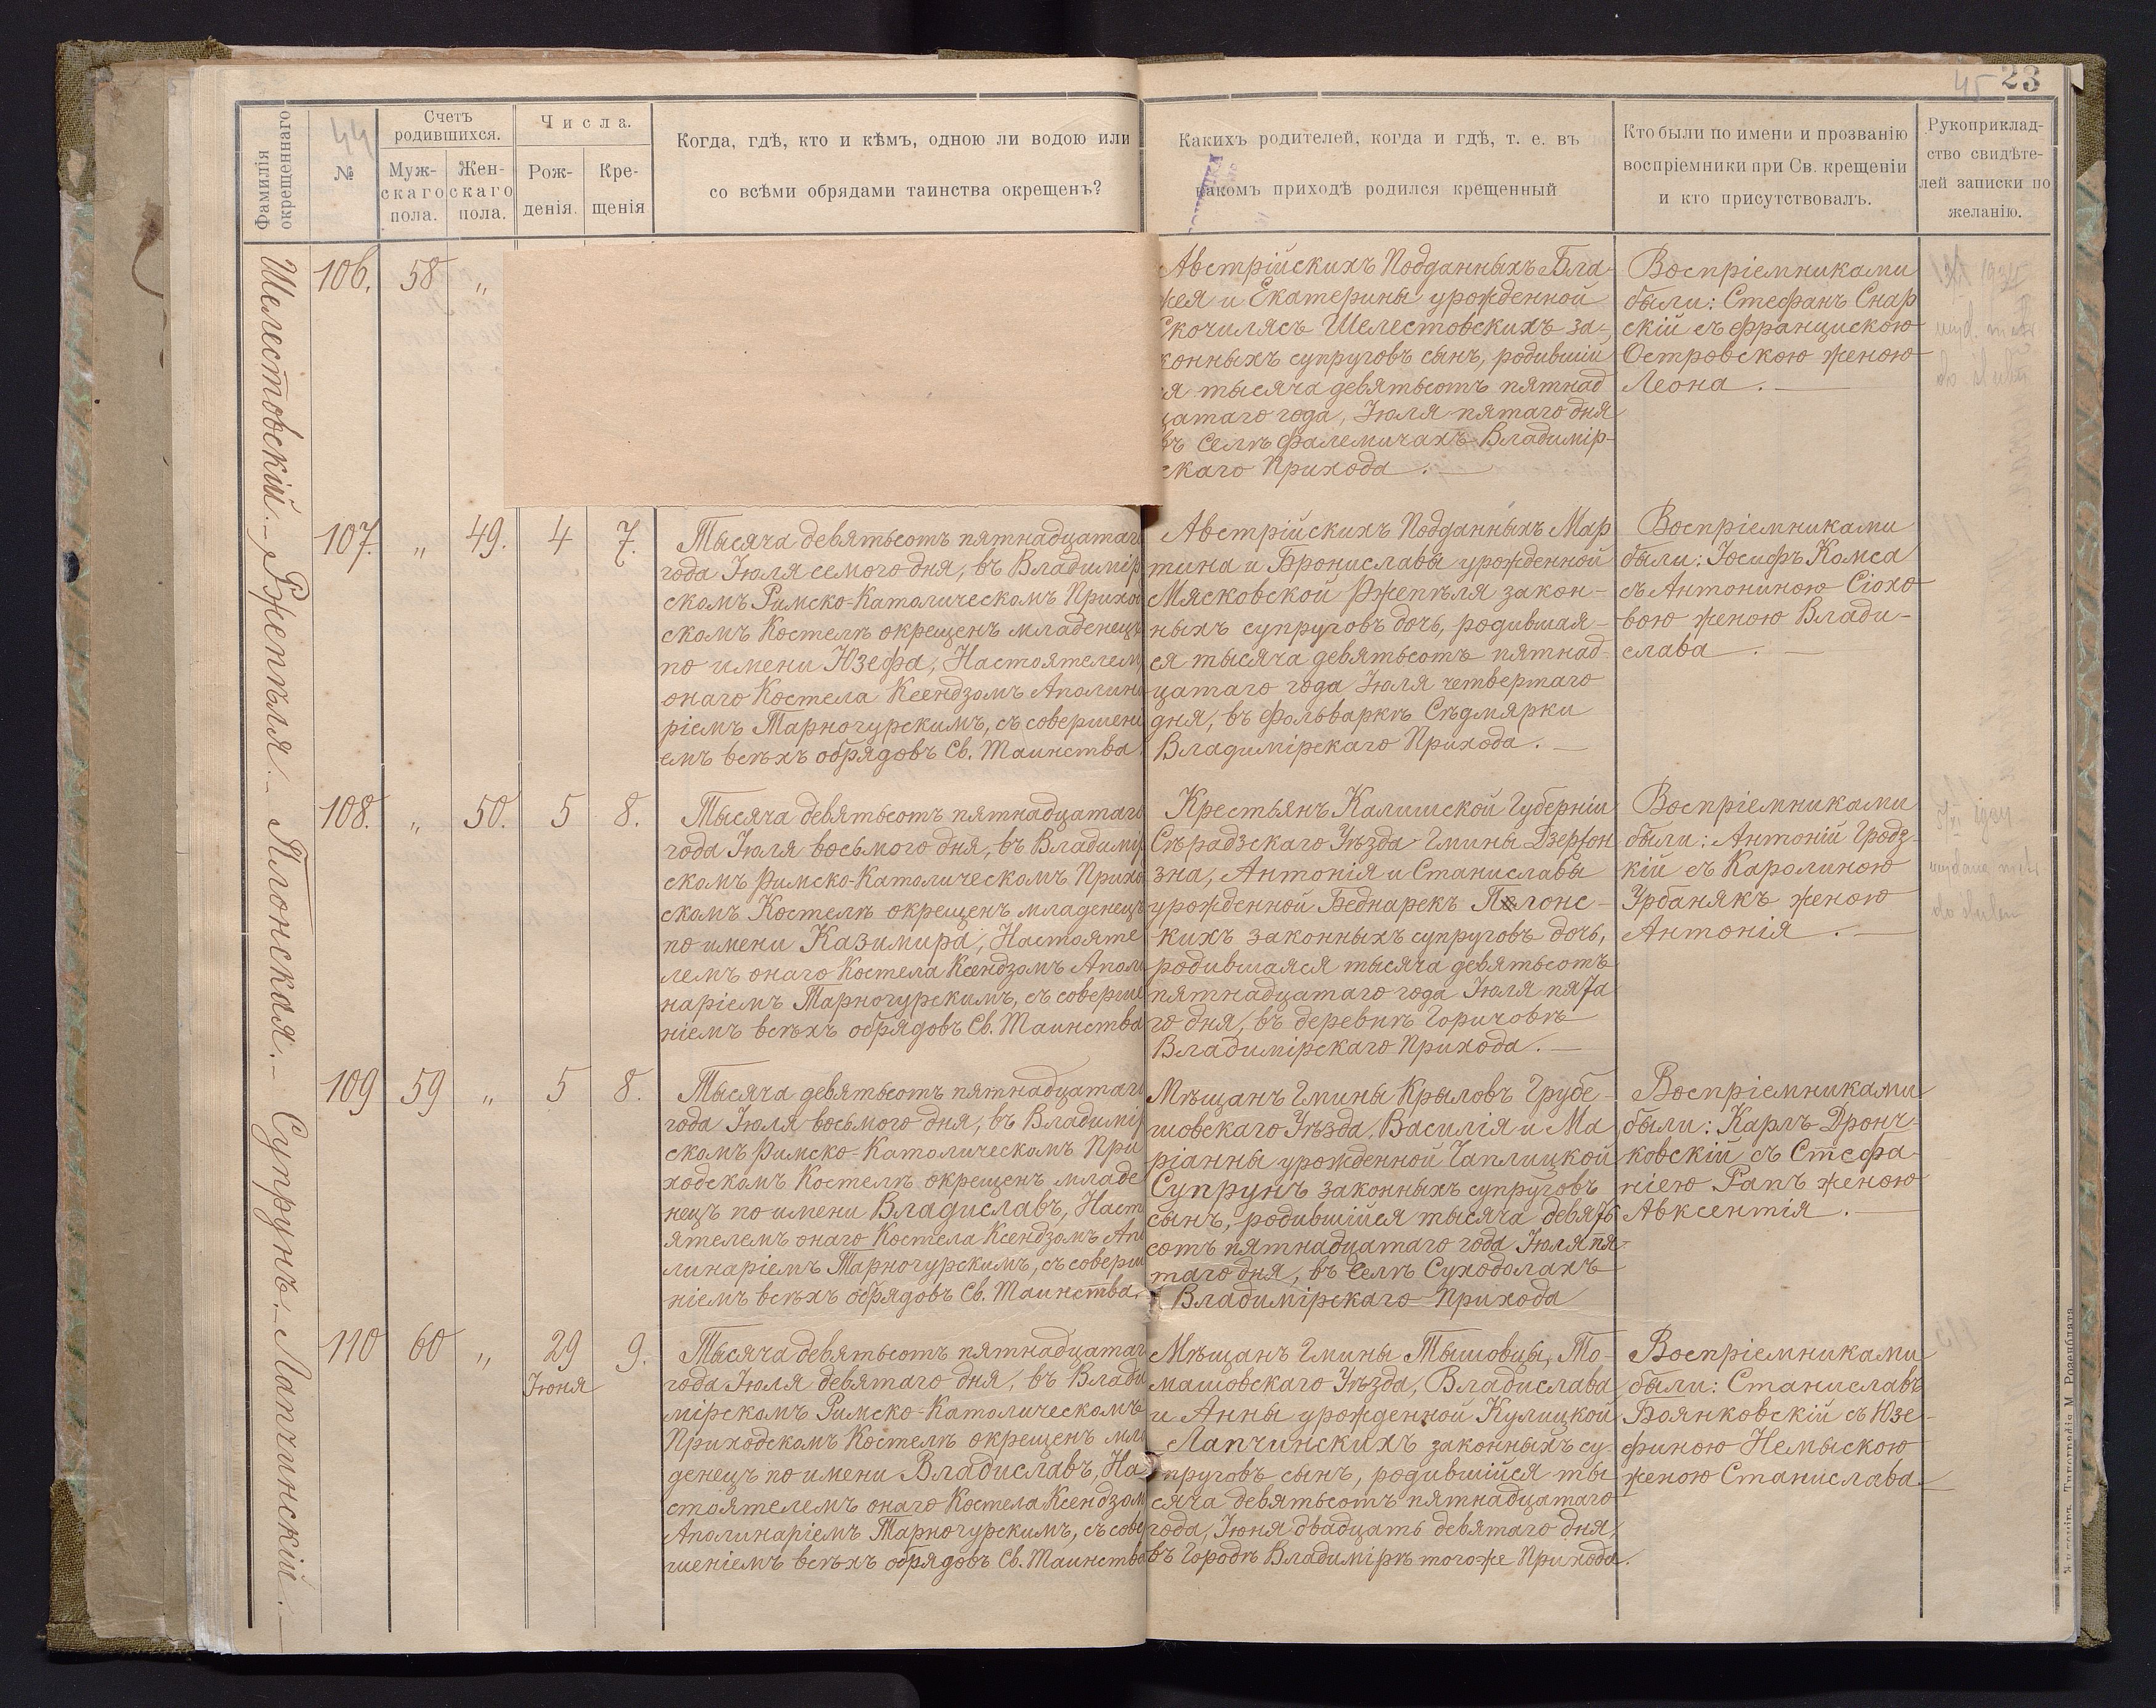 45 23
Фамилія
окрещеннаго
44
№
Счетъ
родившихся.
Муж-
скаго
пола.
Жен-
скаго
пола.
Числа.
Рож-
денія.
Кре-
щенія
Когда, гдѣ, кто и кѣмъ, одною ли водою или
со всѣми обрядами таинства окрещенъ?
Каких родителей, когда и гдѣ, т. е. въ
какомъ приходѣ родился крещенный
Кто были по имени и прозванію
воспріемники при Св. крещеніи
и кто присутствовалъ.
Рукоприклад-
ство свидѣте-
лей записки по
желанію.
Шелестовскій.
106. 58 "
Австрійскихъ Подданныхъ Бла-
жея и Екатерины урожденной
Скочилясъ Шелестовскихъ за-
конныхъ супруговъ сынъ, родившій
я тысяча девятьсотъ пятнад
цатаго года, Іюля пятаго дня
въ Селѣ Фалемичахъ Владимір-
скаго Прихода.
Воспріемниками
были: Стефанъ Снар
скій съ Францискою
Островскою женою
Леона.
Ржепѣля.
107. " 49. 4 7.
Тысяча девятьсотъ пятнадцатаг
года Іюля семого дня, въ Владимір
скомъ Римско-Католическомъ Приход
скомъ Костелѣ окрещенъ младенецъ
по имени Юзефа, Настоятелем
онаго Костела Ксендзомъ Аполина
ріемъ Тарногурскимъ, съ совершені
емъ всѣхъ обрядовъ Св. Таинства.
Австрійскихъ Подданныхъ Мар
тина и Брониславы урожденной
Мясковской Ржепѣля закон-
ныхъ супруговъ дочь, родившая-
ся тысяча девятьсотъ пятнад-
цатаго года Іюля четвертаго
дня, въ Фольваркѣ Сѣдмярки
Владимірскаго Прихода.
Воспріемниками
были: Іосифъ Комса
съ Антониною Сіохо
вою женою Влади-
слава.
Плонская.
108. " 50. 5 8.
Тысяча девятьсотъ пятнадцатаго
года Іюля восьмого дня, въ Владимір
скомъ Римско-Католическомъ Прихо
скомъ Костелѣ окрещенъ младенецъ
по имени Казимира, Настояте
лемъ онаго Костела Ксендзомъ Аполи
наріемъ Тарногурскимъ, съ соверше
ніемъ всѣхъ обрядовъ Св. Таинства
Крестьянъ Калишской Губерніи
Сѣрадзскаго Уѣзда Гмины Дзерон
зна, Антонія и Станиславы
урожденной Беднарекъ Плонс-
кихъ законныхъ супруговъ дочь,
родившаяся тысяча девятьсотъ
пятнадцатаго года Іюля пята
го дня, въ деревнѣ Горичовѣ
Владимірскаго Прихода.
Воспріемниками
были: Антоній Гродз-
кій съ Каролиною
Урбанякъ женою
Антонія.
Супрунъ.
109 59 " 5 8.
Тысяча девятьсотъ пятнадцатаго
года Іюля восьмого дня, въ Владимір
скомъ Римско-Католическомъ При
ходскомъ Костелѣ окрещенъ младе
нецъ по имени Владиславъ, Наст
ятелемъ онаго Костела Ксендзомъ Апо
линаріемъ Тарногурскимъ, съ соверш
ніемъ всѣхъ обрядовъ Св. Таинства.
Мѣщанъ Гмины Крыловъ Грубе-
шовскаго Уѣзда, Василія и Ма
ріанны урожденной Чаплицкой
Супрунъ законныхъ супруговъ
сынъ, родившійся тысяча девять
сотъ пятнадцатаго года Іюля пя-
таго дня, въ Селѣ Суходолахъ
Владимірскаго Прихода
Воспріемниками
были: Карлъ Дронч-
ковскій съ Стефа-
ніею Рапъ женою
Авксентія.
Лапчинскій.
110 60 " 29 9.
Іюня
Тысяча девятьсотъ пятнадцатаг
года Іюля девятаго дня, въ Влади
мірскомъ Римско-Католическомъ
Приходскомъ Костелѣ окрещенъ мла
денецъ по имени Владиславъ, На
стоятелемъ онаго Костела Ксендзом
Аполинаріемъ Тарногурскимъ, съ сове
шеніемъ всѣхъ обрядовъ Св. Таинства
Мѣщанъ Гмины Тышовцы, То-
машовскаго Уѣзда, Владислава
и Анны урожденной Кулицкой
Лапчинскихъ законныхъ су-
пруговъ сынъ, родившійся ты
сяча девятьсотъ пятнадцатаго
года, Іюня двадцать девятаго дня,
въ Городѣ Владимірѣ тогоже Прихода.
Воспріемниками
были: Станиславъ
Боянковскій съ Юзе-
финою Немыскою
женою Станислава
Типографія М. Розенблата